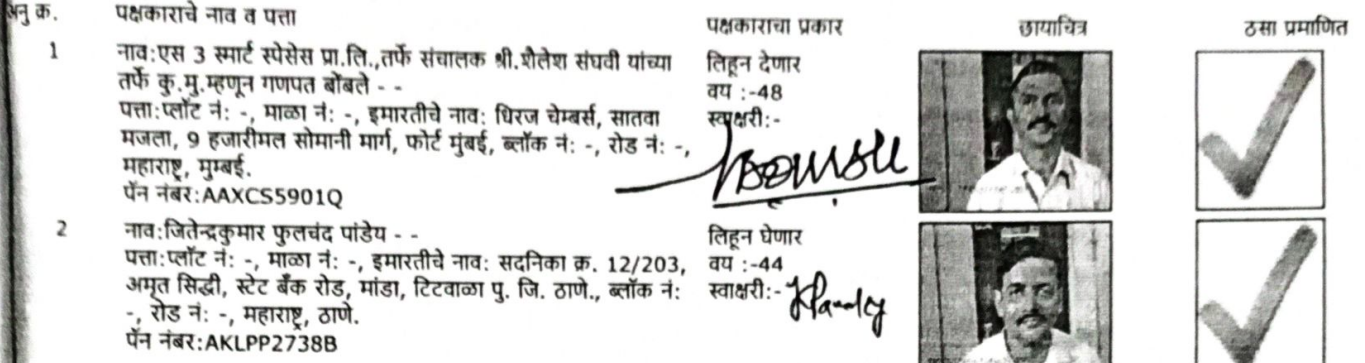 अनु क्र. पक्षकाराचे नाव व पत्ता पक्षकाराचा प्रकार छायाचित्र ठसा प्रमाणित
1 नाव:एस 3 स्मार्ट स्पेसेस प्रा.लि.,तर्फे संचालक श्री.शैलेश संघवी यांच्या
तर्फे कु.मु.म्हणून गणपत बोंबले - -
पत्ता:प्लॉट नं: -, माळा नं: -, इमारतीचे नाव: धिरज चेम्बर्स, सातवा
मजला, 9 हजारीमल सोमानी मार्ग, फोर्ट मुंबई, ब्लॉक नं: -, रोड नं: -,
महाराष्ट्र, मुम्बई.
पॅन नंबर:AAXCS5901Q
लिहून देणार
वय :-48
स्वाक्षरी:-
2 नाव:जितेन्द्रकुमार फुलचंद पांडेय - -
पत्ता:प्लॉट नं: -, माळा नं: -, इमारतीचे नाव: सदनिका क्र. 12/203,
अमृत सिद्धी, स्टेट बँक रोड, मांडा, टिटवाळा पु. जि. ठाणे., ब्लॉक नं:
-, रोड नं: -, महाराष्ट्र, ठाणे.
पॅन नंबर:AKLPP2738B
लिहून घेणार
वय :-44
स्वाक्षरी:-